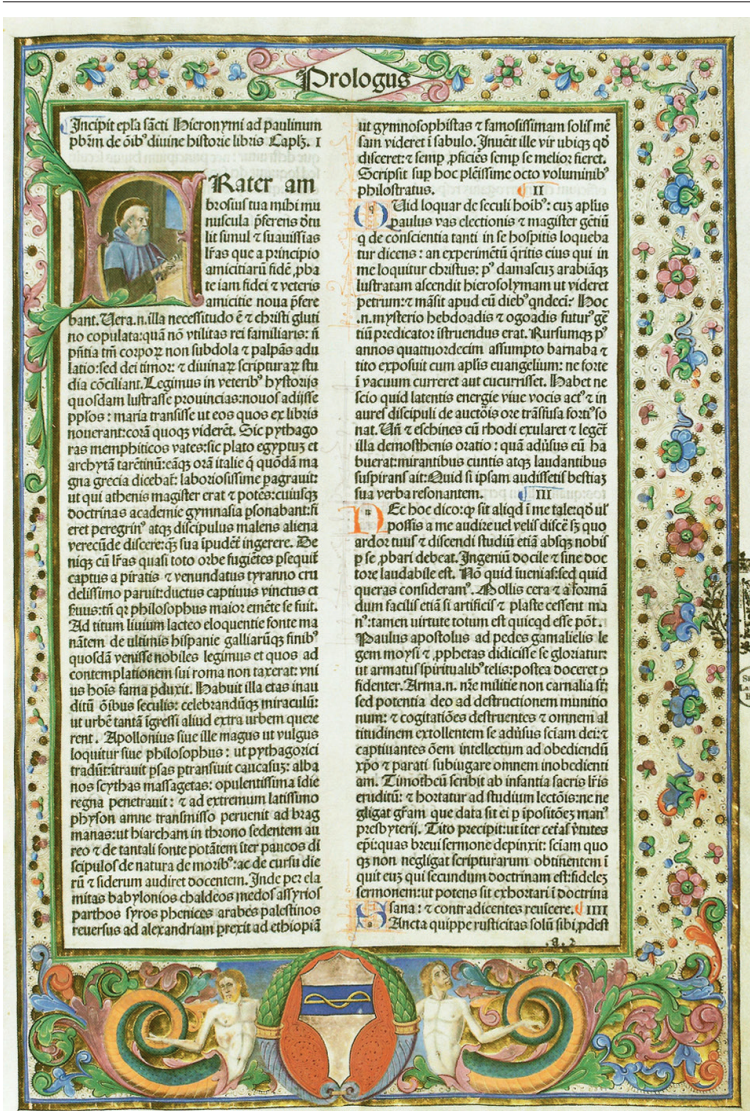 Prologus
Incipit epl̄a sācti Hieronymi ad paulinum
pbr̄m de ōibꝰ diuine historie libris Capl̄ꝫ. I
FRater am
brosius tua mihi mu
nuscula ꝑferens ōtu
lit simul ⁊ suauissīas
lr̄as que a principio
amicitiarū fidē, ꝓba
te iam fidei ⁊ veteris
amicitie noua ꝓfere
bant. Uera.n.illa necessitudo ē ⁊ christi gluti
no copulata:quā nō vtilitas rei familiaris: n̄
pn̄tia tm̄ corpoꝝ non subdola ⁊ palpās adu
latio:sed dei timor: ⁊ diuinaꝝ scripturaꝝ stu
dia cōciliant. Legimus in veteribꝰ hystorijs
quosdam lustrasse prouincias:nouos adijsse
pplos̄: maria transisse ut eos quos ex libris
nouerant:corā quoqꝫ viderēt. Sic pythago
ras memphiticos vates:sic plato egyptuꝫ et
archytā tarētinū:eāqꝫ orā italie q̄ quōdā ma
gna grecia dicebat̄: laboriosissime ꝑagrauit:
ut qui athenis magister erat ⁊ potēs:cuiusqꝫ
doctrinas academie gymnasia ꝑsonabant:fi
eret peregrinꝰ atqꝫ discipulus malens aliena
verecūde discere:qꝫ sua īpudēt̄ ingerere. De
niqꝫ cū lr̄as quasi toto orbe fugiētes ꝑsequit̄
captus a piratis ⁊ venundatus tyranno cru
delissimo paruit:ductus captiuus vinctus et
ẜuus:tn̄ qꝛ philosophus maior emēte se fuit.
Ad titum liuium lacteo eloquentie fonte ma
nātem de ultimis hispanie galliarūqꝫ finibꝰ
quosdā venisse nobiles legimus et quos ad
contemplationem sui roma non taxerat: vni
us hoīs fama ꝑduxit. Habuit illa etas inau
ditū ōibus seculis: celebrandūqꝫ miraculū:
ut urbē tantā īgressi aliud extra urbem quere
rent. Apollonius siue ille magus ut vulgus
loquitur siue philosophus: ut pythagorici
tradūt:ītrauit ꝑsas ꝑtransiuit caucasuꝫ: alba
nos scythas massagetas: opulentissima īdie
regna penetrauit: ⁊ ad extremum latissimo
physon amne transmisso peruenit ad brag
manas:ut hiarcham in throno sedentem au
reo ⁊ de tantali fonte potātem īter pancos di
scipulos de natura de moribꝰ:ac de cursu die
rū ⁊ siderum audiret docentem. Inde per ela
mitas babylonios chaldeos medos assyrios
parthos syros phenices arabes palestinos
reuersus ad alexandriam ꝑrexit ad ethiopiā
ut gymnosophistas ⁊ famosissimam solis mē
sam videret ī sabulo. Inuēit ille vir ubiqꝫ qd̄
disceret:⁊ semꝑ ꝓficiēs semꝑ se melior fieret.
Scripsit suꝑ hoc plēissime octo voluminibꝰ
philostratus. II
QUid loquar de seculi hoībꝰ: cuꝫ apl̄us
paulus vas electionis ⁊ magister gētiū
q̄ de conscientia tanti in se hospitis loqueba
tur dicens: an experimētū q̄ritis eius qui in
me loquitur christus: pꝰ damascuꝫ arabiāqꝫ
lustratam ascendit hierosolymam ut videret
petrum:⁊ māsit apud eū diebꝰ qndeci: Hoc
.n.mysterio hebdoadis ⁊ ogoadis futurꝰ gē
tiū predicator īstruendus erat. Rursumqꝫ pꝰ
annos quattuordecim assumpto barnaba ⁊
tito exposuit cum apl̄is euangelium: ne forte
ī vacuum curreret aut cucurrisset. Habet ne
scio quid latentis energie viue vocis actꝰ:⁊ in
aures discipuli de auctōis ore trāsfusa fortiꝰ so
nat. Un̄ ⁊ eschines cū rhodi exularet ⁊ leget̄
illa demosthenis oratio: quā aduẜus eū ha
buerat:mirantibus cuntis atqꝫ laudantibus
suspirans ait:Quid si ipsam audissetis bestiaꝫ
sua verba resonantem. III
NEc hoc dico:qꝫ sit aliqd̄ ī me tale:qd̄ ul̄
possis a me audire uel velis discēꝰ sꝫ quo
ardor tuus ⁊ discendi studiū etiā absqꝫ nobis
ꝑ se ꝓbari debeat. Ingeniū docile ⁊ sine doc
tore laudabile est. Nō quid īuenias:sed quid
queras consideramꝰ. Mollis cera ⁊ ad formā
dum facilis etiā si artificis ⁊ plaste cessent ma
nꝰ:tamen uirtute totum est quicqd̄ esse pōt.
Paulus apostolus ad pedes gamalielis le
gem moysi ⁊ ꝓphetas didicisse se gloriatur:
ut armatus spiritualibꝰ telis:postea doceret ꝯ
fidenter. Arma.n. nr̄e militie non carnalia st̄:
sed potentia deo ad destructionem munitio
num: ⁊ cogitatiōes destruentes ⁊ omnem al
titudinem extollentem se aduẜus sciam dei:⁊
captiuantes ōem intellectum ad obediendū
xp̄o ⁊ parati subiugare omnem inobedienti
am. Timotheū scribit ab infantia sacris lr̄is
eruditū: ⁊ hortatur ad studium lectōis:ne ne
gligat gr̄am que data sit ei ꝑ īpositōeꝫ manꝰ
presbyterij. Tito precipit:ut īter cet̄as v̄tutes
ep̄i:quas breui sermone depinxit: sciam quo
qꝫ non negligat scripturarum obtinentem ī
quit euꝫ qui secundum doctrinam est:fideleꝫ
sermonem:ut potens sit exhortari ī doctrina
sana: ⁊ contradicentes reuīcere. IIII
SAncta quippe rusticitas solū sibi ꝓdest
.a. 2